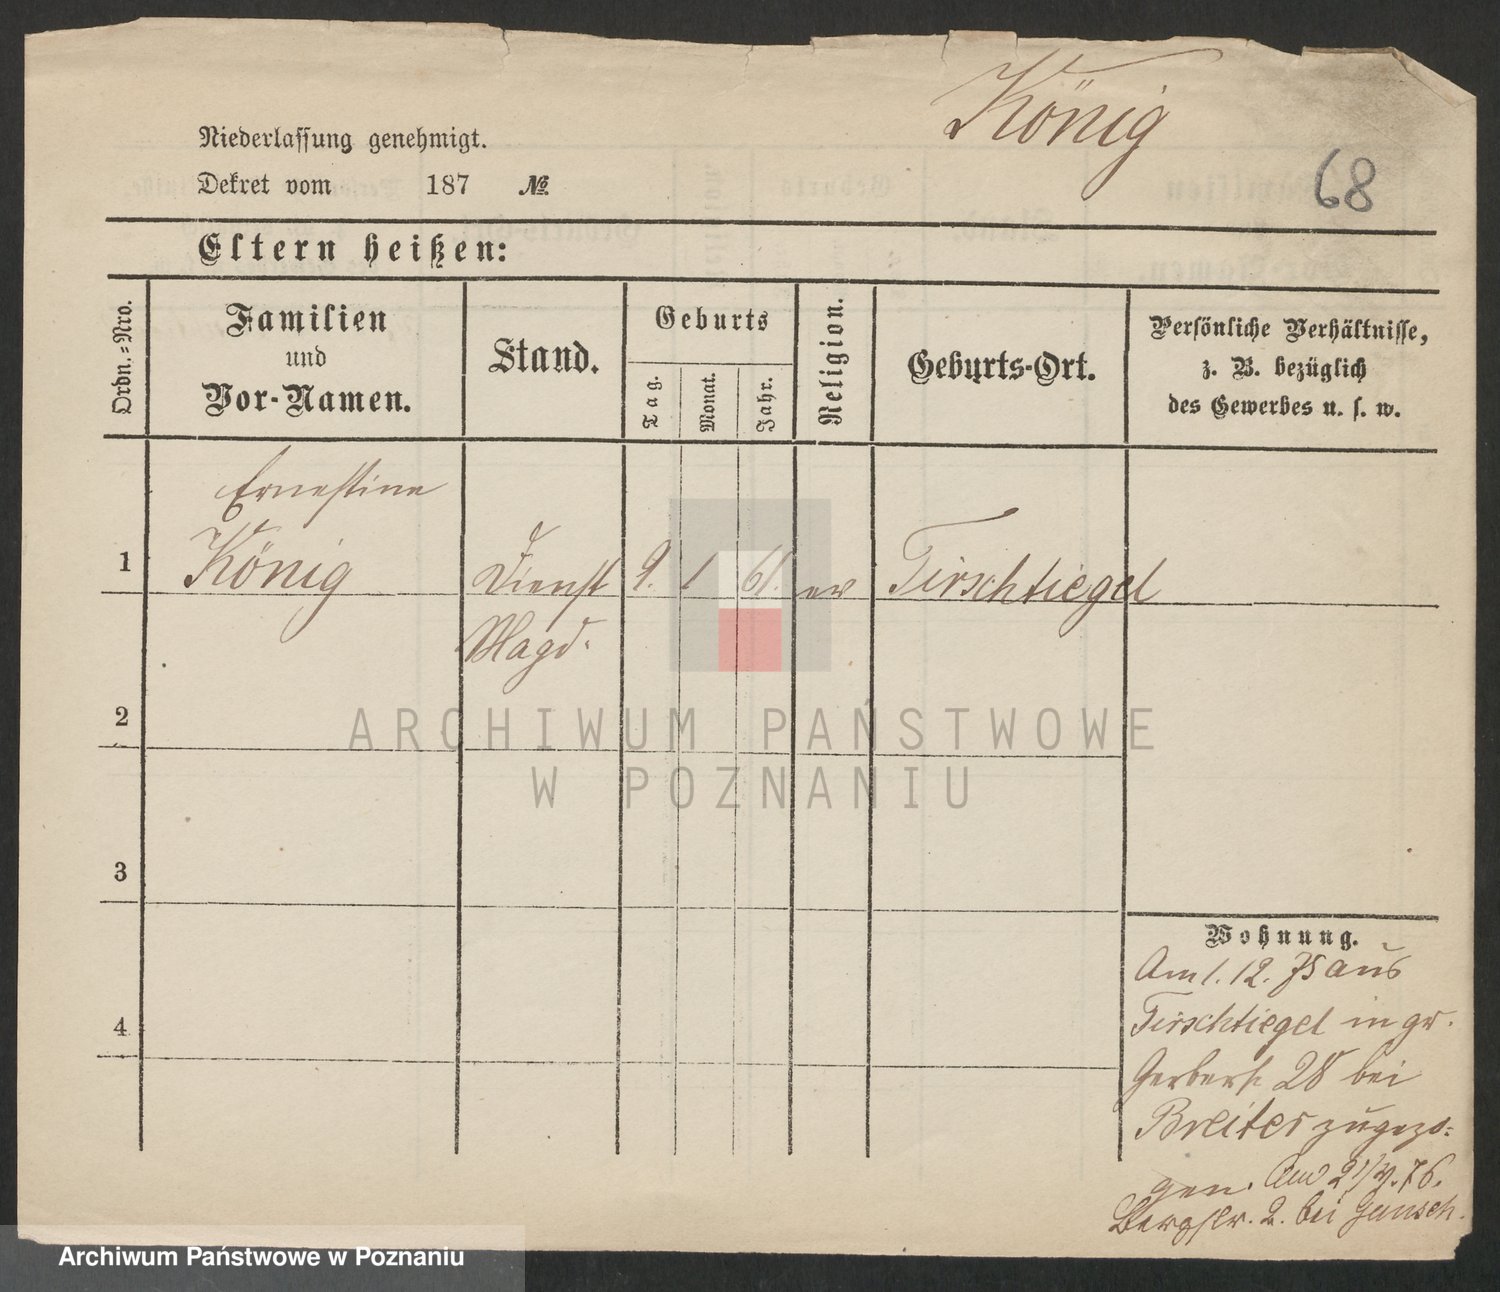 König
68
Niederlassung genehmigt.
Dekret vom 187 №
Eltern heißen:
Ordn.=Nro.
Familien
und
Vor-Namen.
Stand.
Geburts
Tag.
Monat.
Jahr.
Religion.
Geburts-Ort.
Persönliche Verhältnisse,
z. B. bezüglich
des Gewerbes u. s. w.
Ernestine
1 König Dienst 9. 1 61. ev Tirschtiegel
Magd.
2
3
4
Wohnung.
Am 1. 12. 75 aus
Tirschtiegel in gr.
Gerberst 28 bei
Breiter zugezo=
gen. Am 76.
Bergstr. 2. bei
ARCHIWUM PAŃSTWOWE
W POZNANIU
Archiwum Państwowe w Poznaniu